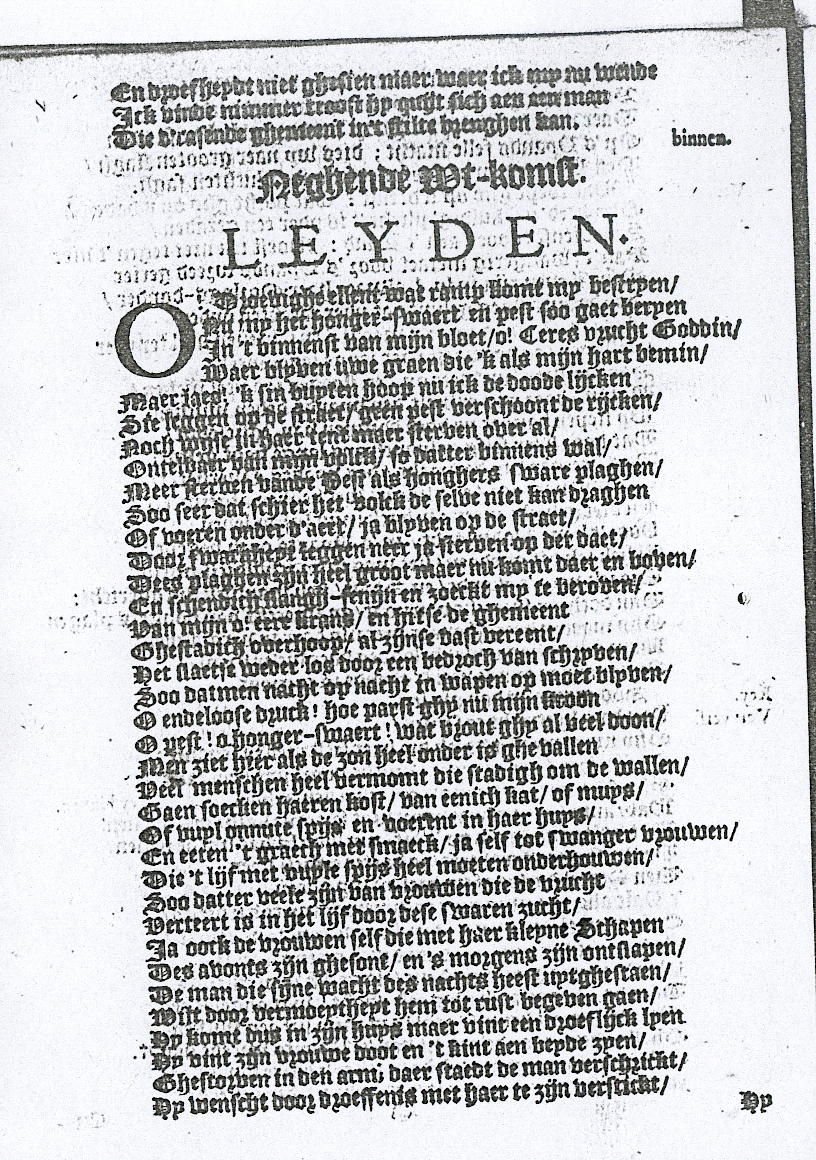 En droefheydt niet ghesien maer waer ick my nu wende
Ick vinde nimmer troost hy quijt sich aen een man
Die d'rasende ghemeent in't stilte brenghen kan.
binnen.
Neghende Wt-komst.
LEYDEN.
O Eewighe ellent wat ramp komt my bestryen/
Nu my het honger-swaert en pest soo gaet beryen
In 't binnenst van mijn bloet/o! Ceres vrucht Goddin/
Waer blyven uwe graen die 'k als mijn hart bemin/
Maer laes! 'k sin buyten hoop nu ick de doode lijcken
Sie leggen op de straet/ geen pest verschoont de rijcken/
Noch wyse in haer tent maer sterven over al/
Ontelbaer van mijn volck/ so datter binnens wal/
Meer sterven vande Pest als honghers sware plaghen/
Soo seer dat schier het volck de selve niet kan draghen
Of voeren onder d'aert/ ja blyven op de straet/
Door swackheyt leggen neer ja sterven op der daet/
Dees plaghen zijn heel groot maer nu komt daer en boven/
En schendich slangh-fenijn en zoeckt my te beroven/
Van mijn o! eere krans/ en hitse de ghemeent
Ghestadich overhoop/ al zijnse vast vereent/
Het slaetse weder los door een bedroch van schryven/
Soo datmen nacht op nacht in wapen op moet blyven/
O endeloose druck! hoe parst ghy nu mijn kroon
O pest! o honger-swaert! wat brout ghy al veel doon/
Men ziet hier als de zon heel onder is ghevallen
Veel menschen heel vermomt die stadigh om de wallen/
Gaen soecken haeren kost/ van eenich kat/ of muys/
Of vuyl onnutte spijs en voerent in haer huys/
En eeten 't graech met smaeck/ ja self tot swanger vrouwen/
Die 't lijf met vuyle spijs heel moeten onderhouwen/
Soo datter veele zijn van vrouwen die de vrucht
Verteert is in het lijf door dese swaren zucht/
Ja oock de vrouwen self die met haer kleyne Schapen
Des avonts zijn ghesont/ en 's morgens zijn ontslapen/
De man die sijne wacht des nachts heeft uytghestaen/
Wilt door vermoeytheyt hem tot rust begeven gaen/
Hy komt dus in zijn huys maer vint een droeflijck lyen
Hy vint zijn vrouwe doot en 't kint aen beyde zyen/
Ghestorven in den arm; daer staedt de man verschrickt/
Hy wenscht door droeffenis met haer te zijn verstickt/
Hy